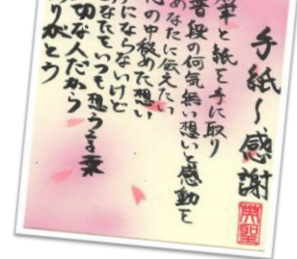 手紙〜感謝
筆と紙を手に取り
普段の何気無い想いと感動を
あなたに伝えたい
の中秘めた想い
にならないけど
なたをいつも想うよ
切な人だから
りがとう